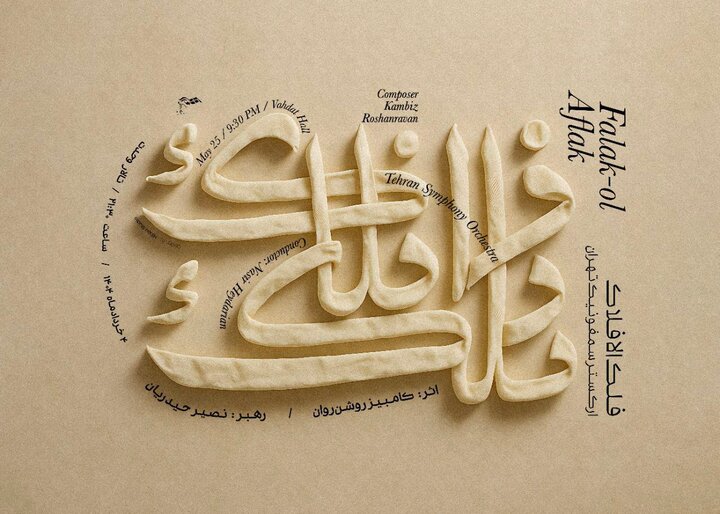 فلك الافلاك
Composer
Kambiz
Roshanravan
May 25 / 9:30 PM / Vahdat Hall
Tehran Symphony Orchestra
Conductor: Nassir Heydarian
Falak-ol
Aflak
فلک‌الافلاک
ارکستر سمفونیک تهران
۴ خردادماه ۱۴۰۴ / ساعت ۲۱:۳۰ / تالار وحدت
اثر: کامبیز روشن‌روان / رهبر: نصیر حیدریان